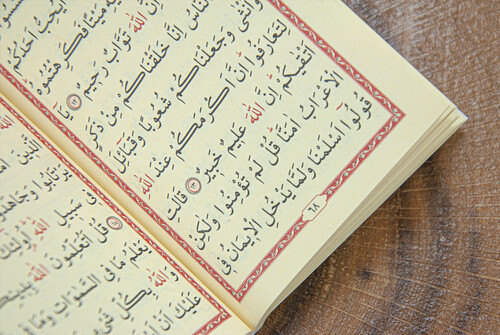 أَيُحِبُّ أَحَدُكُمْ
مَيْتًا فَكَرِهْتُمُوهُ
إِنَّ اللّٰهَ تَوَّابٌ رَحِيمٌ ﴿١٢﴾ يَا
النَّاسُ إِنَّا خَلَقْنَاكُمْ مِنْ ذَكَرٍ
وَأُنْثٰى وَجَعَلْنَاكُمْ شُعُوبًا وَقَبَائِلَ
لِتَعَارَفُوا إِنَّ أَكْرَمَكُمْ عِنْدَ اللّٰهِ
أَتْقٰيكُمْ إِنَّ اللّٰهَ عَلِيمٌ خَبِيرٌ ﴿١٣﴾ قَالَتِ
الْأَعْرَابُ اٰمَنَّا قُلْ لَمْ تُؤْمِنُوا وَلٰكِنْ
قُولُوا أَسْلَمْنَا وَلَمَّا يَدْخُلِ الْإِيمَانُ فِي
٦٨
الَّذِينَ
يَرْتَابُوا وَجَاهَدُوا
فِي سَبِيلِ اللّٰهِ أُولٰئِكَ
قُلْ أَتُعَلِّمُونَ اللّٰهَ
يَعْلَمُ مَا فِي السَّمٰوَاتِ وَمَا
وَاللّٰهُ بِكُلِّ
عَلَيْكَ أَنْ